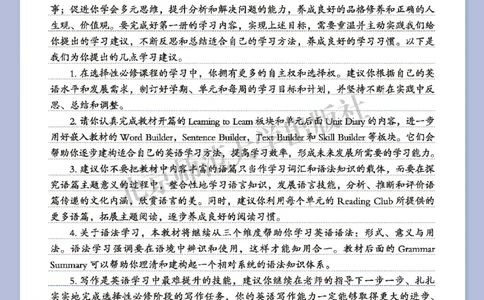 事；促进你学会多元思维，提升分析和解决问题的能力，养成良好的品格修养和正确的人
生观、价值观。要完成好第一册的学习内容，实现上述目标，需要重温并主动实践我们给
你提出的学习建议，不断反思和总结适合自己的学习方法，养成良好的学习习惯。以下是
我们为你提出的几点学习建议。
1. 在选择性必修课程的学习中，你拥有更多的自主权和选择权。建议你根据自己的英
语水平和发展需求，制订好学期、单元和每周的学习目标和计划，并坚持不断在实践中反
思、总结和调整。
2. 请你认真完成教材开篇的 Learning to Learn 板块和单元后面 Unit Diary 的内容，进一步
用好嵌入教材的 Word Builder，Sentence Builder，Text Builder 和 Skill Builder 等板块。它们会
帮助你逐步建构适合自己的英语学习方法，提高学习效率，形成未来发展所需要的学习能力。
3. 建议你不要把教材中内容丰富的语篇只当作学习词汇和语法知识的载体，而要在探
究语篇主题意义的过程中，整合性地学习语言知识，发展语言技能，分析、推断和评价语
篇传递的文化内涵，欣赏语言的美。同时，建议你利用每个单元的 Reading Club 所提供的
更多语篇，拓展主题阅读，逐步养成良好的阅读习惯。
4. 关于语法学习，本教材将继续从三个维度帮助你学习英语语法：形式、意义与用
法。语法学习强调要在语境中辨识和使用，这样才能知用合一。教材后面的 Grammar
Summary 可以帮助你理清和建构起一个相对系统的语法知识体系。
5. 写作是英语学习中最难提升的技能，建议你继续在老师的指导下一步一步、扎扎
实实地完成选择性必修阶段的写作任务，你的英语写作能力一定能够取得更大的进步
北京师范大学出版社